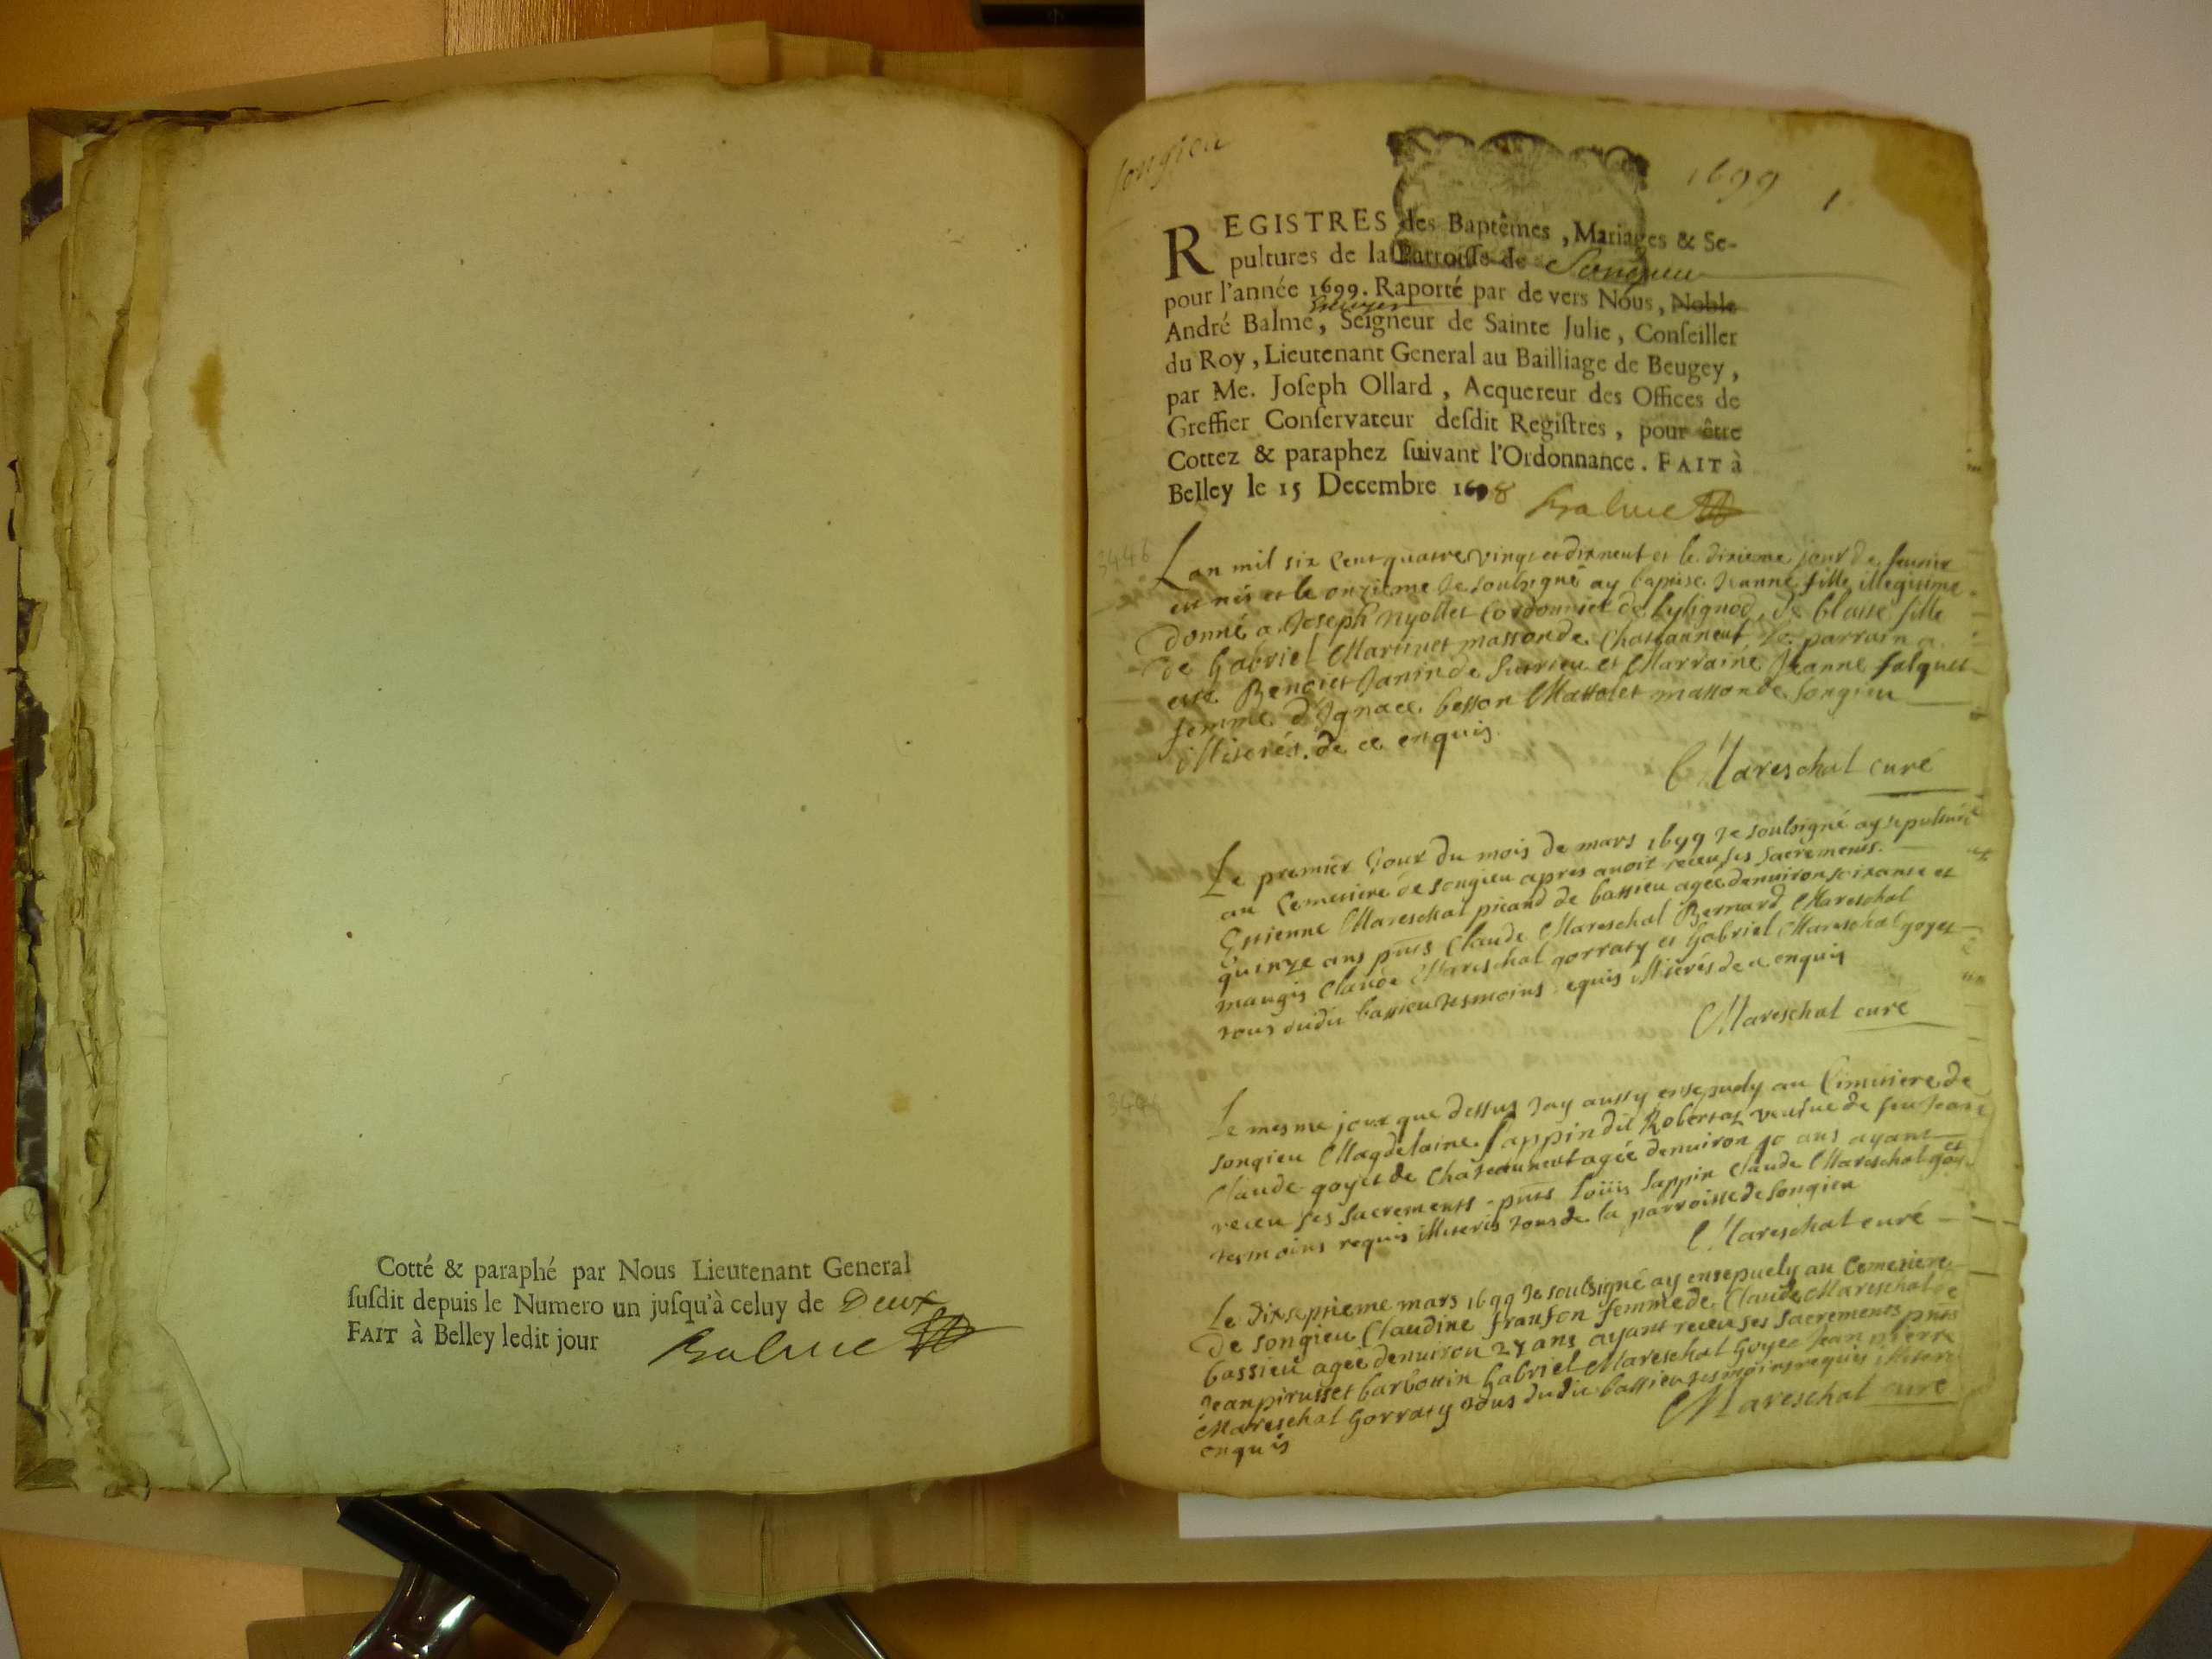 Cotté & paraphé par Nous Lieutenant General
ſuſdit depuis le Numero un juſqu'à celuy de Deux
FAIT à Belley ledit jour Balme
Songieu
1699 1
REGISTRES des Baptêmes, Mariages & Se-
pultures de la Parroiſſe de Songieu
pour l'année 1699. Raporté par de vers Nous, Noble
Escuyer
André Balme, Seigneur de Sainte Julie, Conſeiller
du Roy, Lieutenant General au Bailliage de Beugey,
par Me. Joſeph Ollard, Acquereur des Offices de
Greffier Conſervateur deſdit Regiſtres, pour être
Cottez & paraphez ſuivant l'Ordonnance. FAIT à
Belley le 15 Decembre 1698 Balme
3446
Lan mil six Cent quatre vingt et dix neuf et le dixieme jour de feurier
est nés et le onzieme Je soubsigné ay baptise Jeanne fille illegitime
donné a Joseph nyollet Cordonnier de lylignod, de Clause fille
de Gabriel Martinet masson de Chateauneuf le parrain a
esté Benoict Janin de Surrieu et Marraine Jeanne falquet
femme d'Ignace besson Mattolet masson de Songieu
illiterés. de ce enquis.
Mareschal curé
Le premier Jour du mois de mars 1699 Je soubsigné ay sepulturé
au Cemetiere de songieu apres auoir receu ses sacrements.
Estienne Mareschal picand de bassieu agée denuiron soixante et
quinze ans pnts Claude Mareschal Bernard Mareschal
maugis Claude Mareschal gorraty et Gabriel Mareschal goyet
tous dudit bassieu tesmoins equis illiterés de ce enquis
Mareschal curé
Le mesme jour que dessus Jay aussy ensepuely au Cimitiere de
songieu Magdelaine Sappin dit Robertaz veufue de feu Jean
Claude goyet de Chateauneuf agée denuiron 50 ans ayant
receu ses Sacrements. pnts Loüis Sappin Claude Mareschal
tesmoins requis illiterés tous de la parroisse de Songieu
Mareschal curé
Le dixseptieme mars 1699 Je soubsigné ay ensepuely au Cemetiere
de Songieu Claudine franson femme de Claude Mareschal de
bassieu agée denuiron 27 ans ayant receu ses Sacrements pnts
Jean pirusset barbottin Gabriel Mareschal Goyet Jean pierre
Mareschal Gorraty tous dudit bassieu tesmoins requis
enquis
Mareschal curé